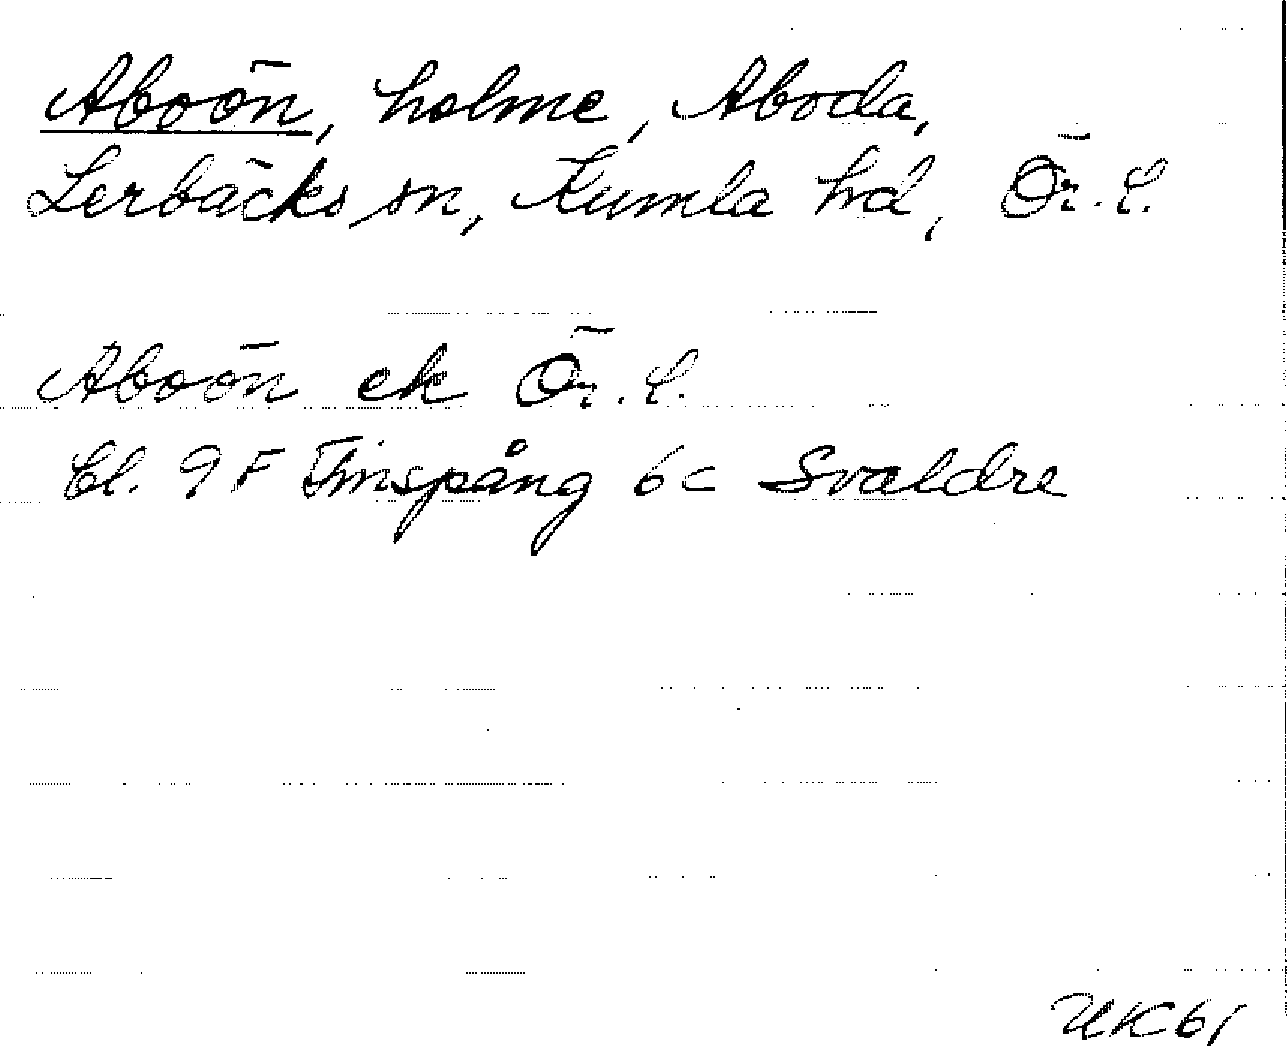 Aboön, holme, Aboda,
Lerbäcks sn, Kumla hd, Ör. l.
Aboön ek Ör. l.
bl. 9F Finspång 6c Svaldre
UK61